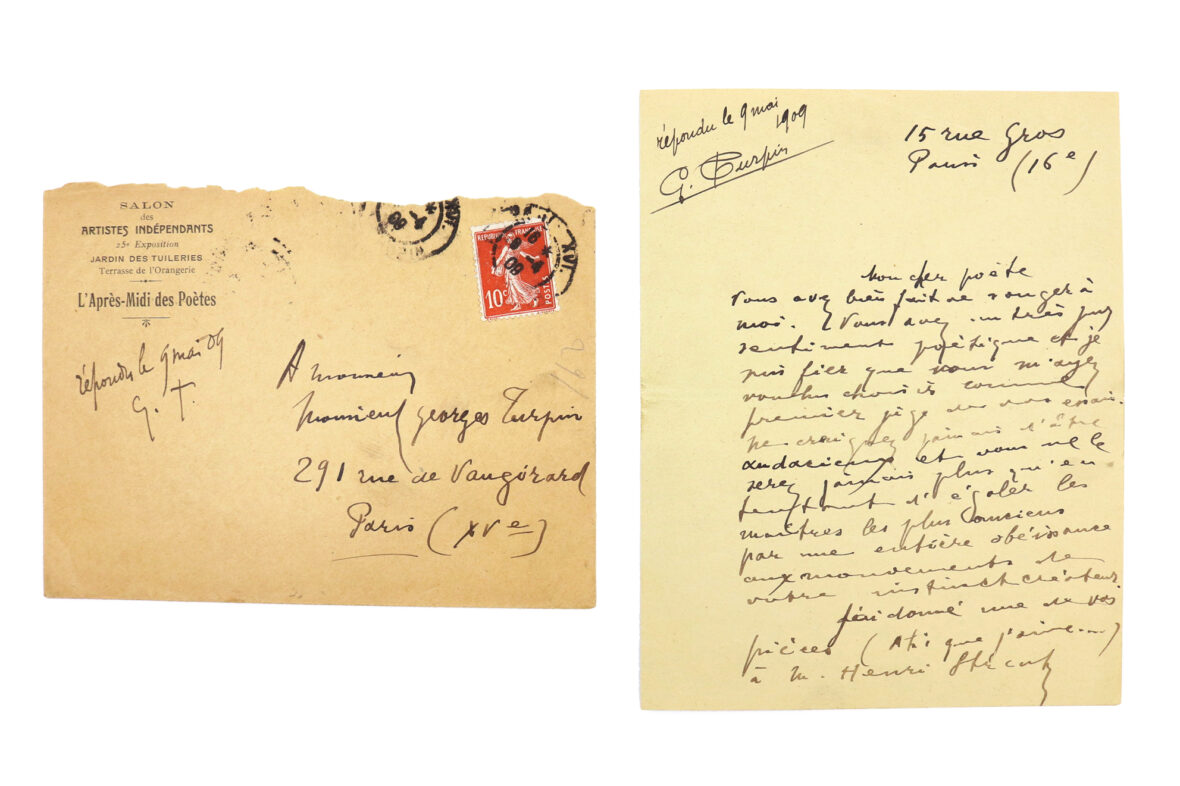 SALON
des
ARTISTES INDÉPENDANTS
25e Exposition
JARDIN DES TUILERIES
Terrasse de l'Orangerie
L'Après-Midi des Poètes
répondu le 9 mai 09
G. T.
REPUBLIQUE FRANÇAISE
10c
POSTES
XVI.
XVI.
A monsieur
Monsieur Georges Turpin
291 rue de Vaugirard
Paris (XVe)
162
répondu le 9 mai
1909
G. Turpin
15 rue Gros
Paris (16e)
Mon cher poète
Vous avez bien fait de songer à
moi. Vous avez un très pur
sentiment poétique et je
suis fier que vous m'ayez
voulu choisir comme
premier juge de vos essais.
Ne craignez jamais d'être
audacieux et vous ne le
serez jamais plus qu'en
tentant d'égaler les
maîtres les plus anciens
par une entière obéissance
aux mouvements de
votre instinct créateur.
J'ai donné une de vos
pièces (Ah! que j'aime....)
à M. Henri